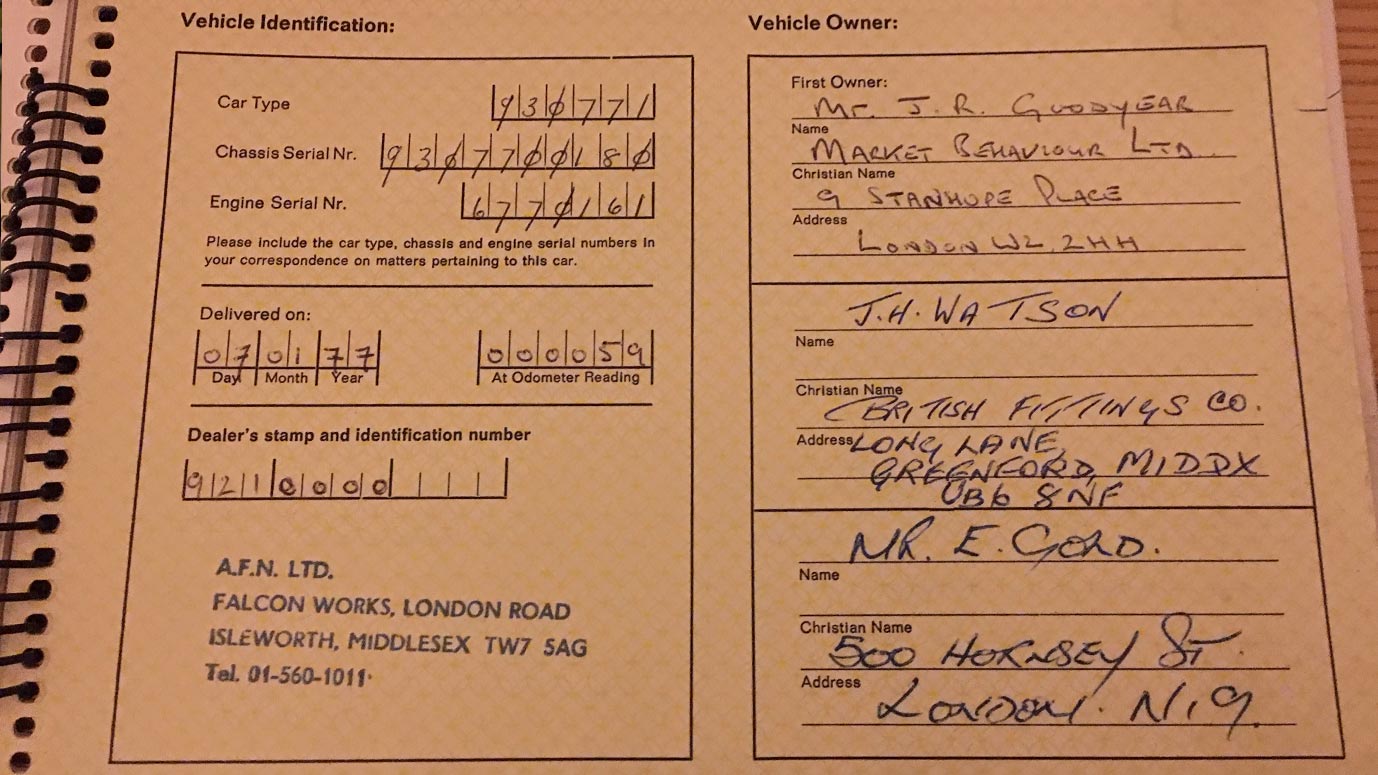 Vehicle Identification:
Car Type 930771
Chassis Serial Nr. 9307700180
Engine Serial Nr. 6770161
Please include the car type, chassis and engine serial numbers in
your correspondence on matters pertaining to this car.
Delivered on:
07 01 77 000059
Day Month Year At Odometer Reading
Dealer's stamp and identification number
9210000
A.F.N. LTD.
FALCON WORKS, LONDON ROAD
ISLEWORTH, MIDDLESEX TW7 5AG
Tel. 01-560-1011
Vehicle Owner:
First Owner:
Mr. J. R. GOODYEAR
Name
MARKET BEHAVIOUR LTD
Christian Name
9 STANHOPE PLACE
Address
LONDON W2. 2HH
J.H. WATSON
Name
Christian Name
BRITISH FITTINGS CO.
Address LONG LANE,
GREENFORD, MIDDX
UB6 8NF
MR. E. GOLD.
Name
Christian Name
500 HORNSEY ST.
Address
LONDON. N.19.